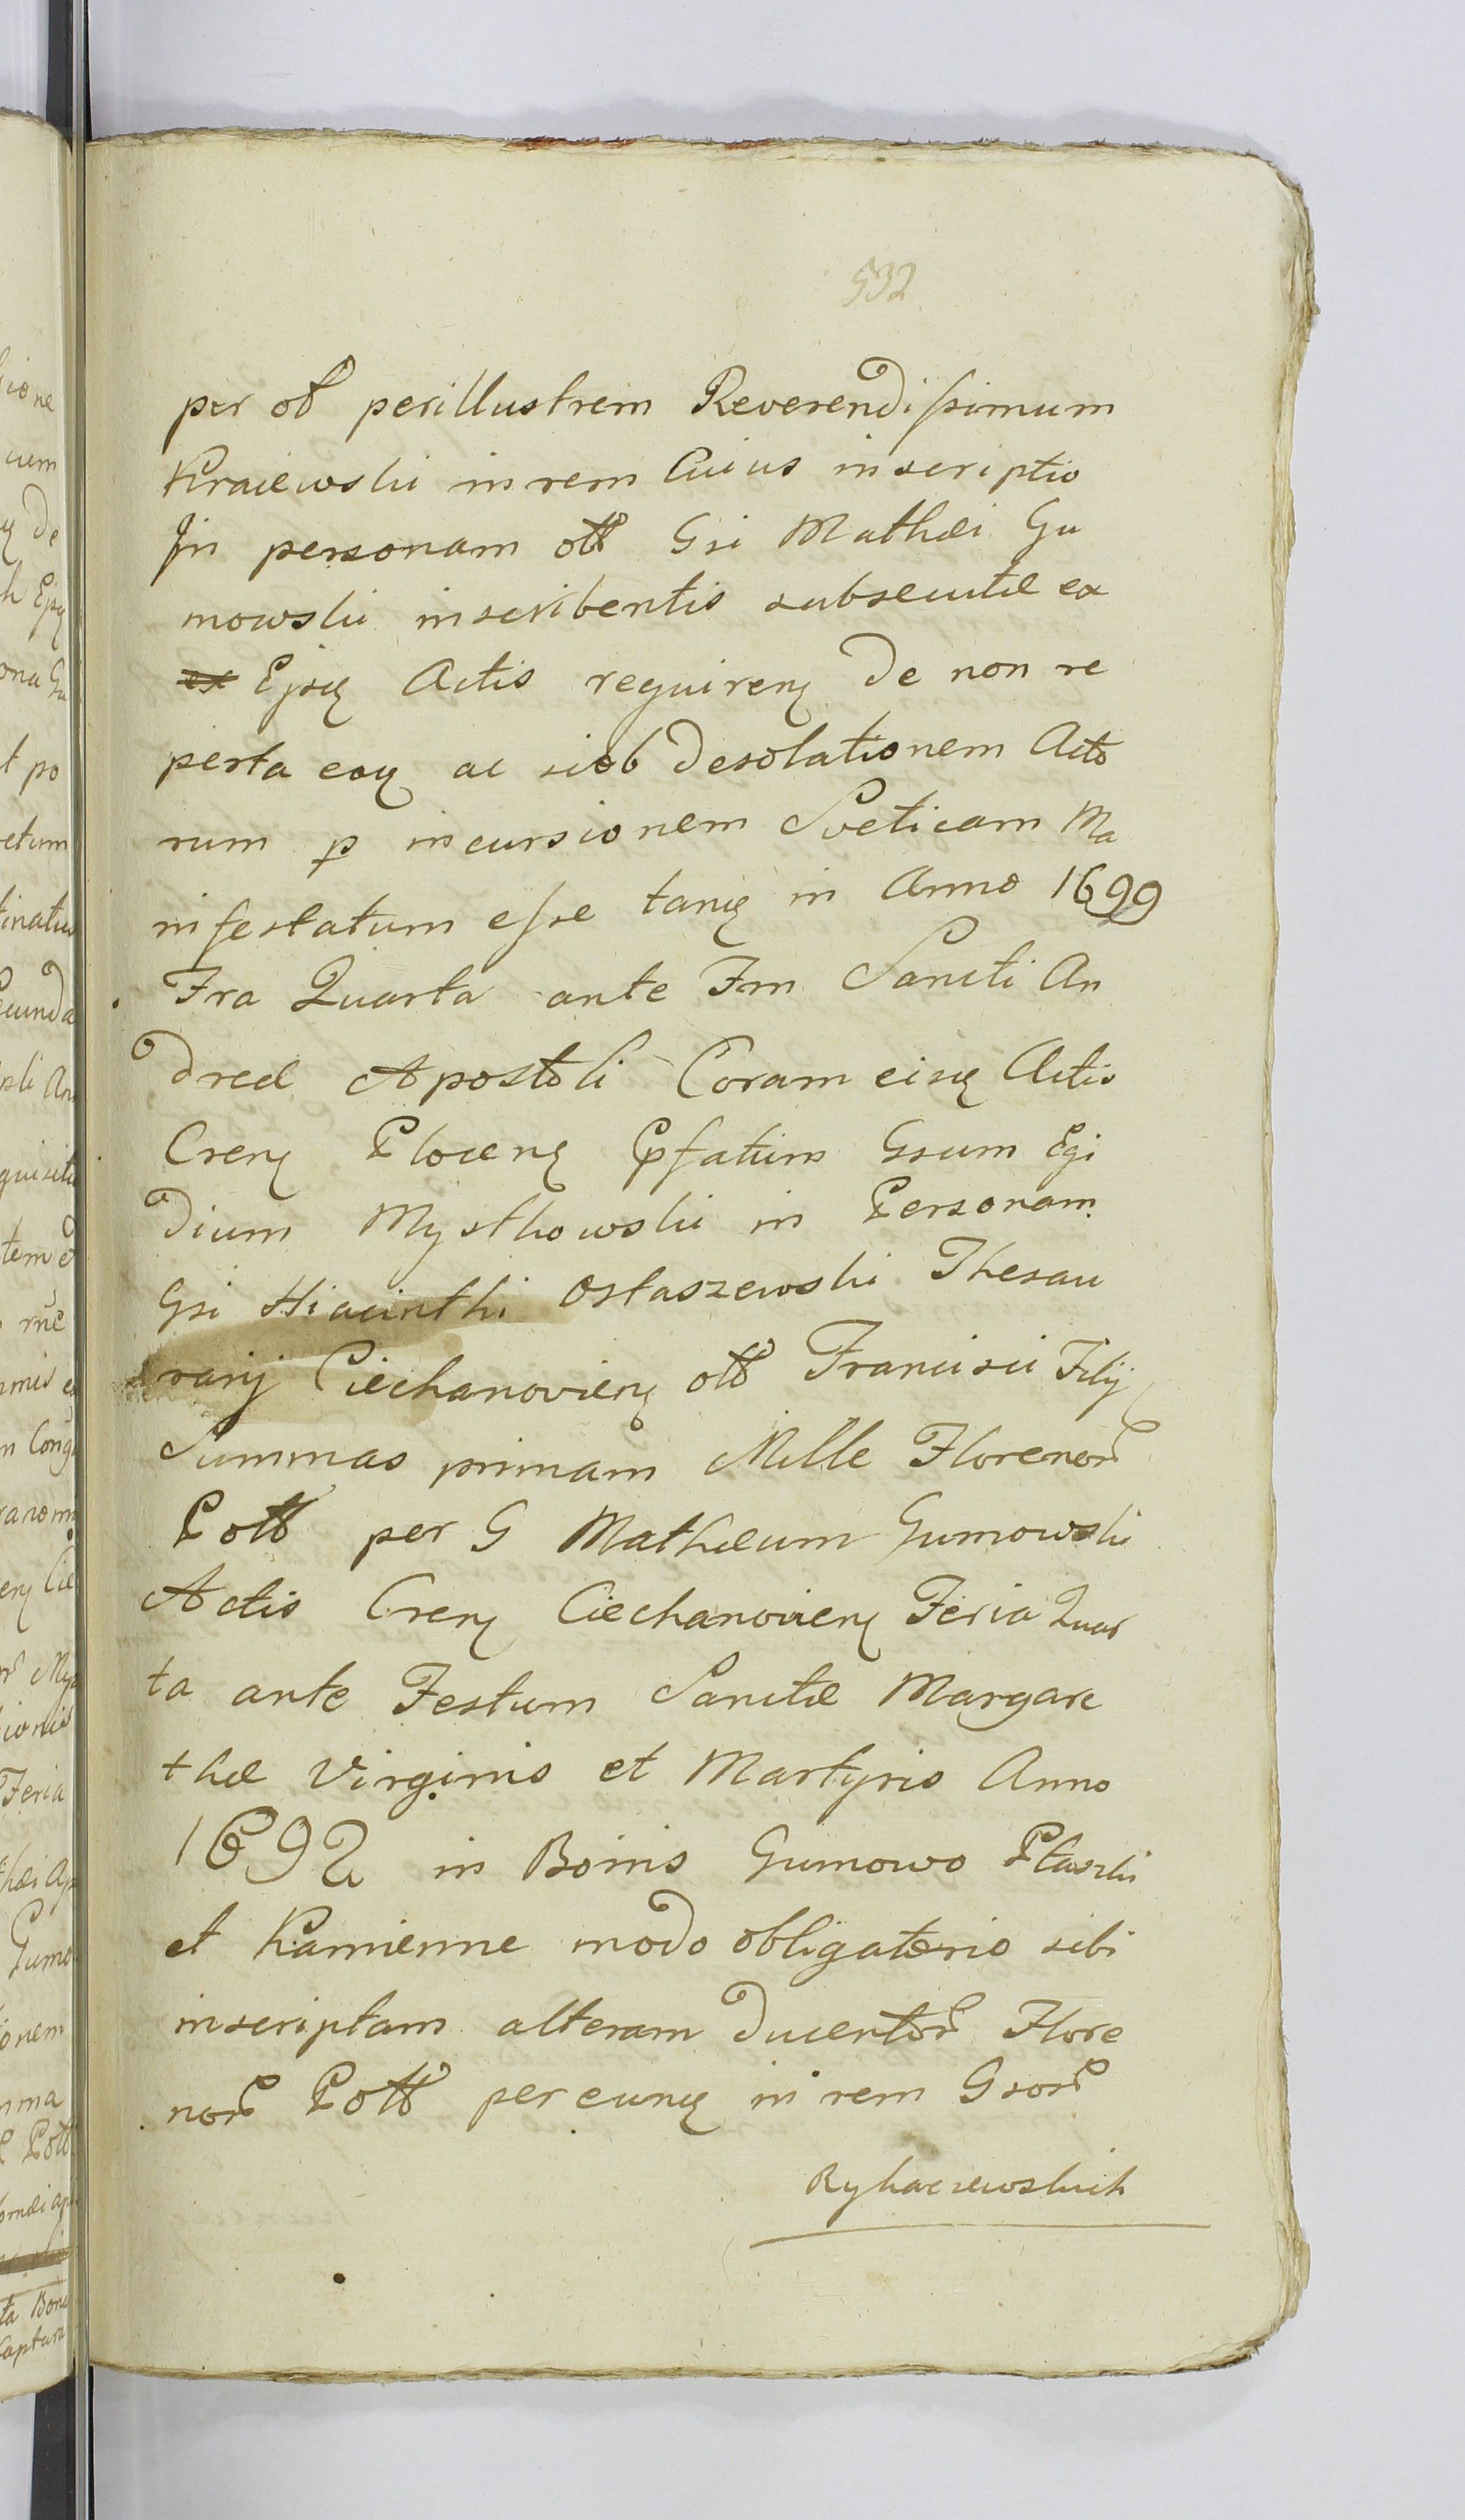 532
per ol perillustrem Reverendissimum
Kraiewski in rem Cuius inscriptio
In personam oll Gsi Mathæi Gu
mowski inscribentis subsecutæ ex
ex Ejsq Actis requirenq de non re
perta eaq ac si ob desolationem Acto
rum p incursionem Sveticam Ma
nifestatum esse tanq in Anno 1699
Fra Quarta ante Fm Sancti An
dreæ Apostoli Coram eisq Actis
Crenq Plocenq Ppfatum Gsum Egi
dium Mystkowski in Personam
Gsi Hiacinthi Ostaszewski Thesau
rarij Ciechanovienq oll Francisci Filij
Summas primam Mille Florenor
Poll per G Mathæum Gumowski
Actis Crenq Ciechanovienq Feria Quar
ta ante Festum Sanctæ Margare
thæ Virginis et Martyris Anno
1692 in Bonis Gumowo Ptaszki
et Kamienne modo obligatorio sibi
inscriptam alteram Ducentor Flore
nor Poll per eunq in rem Gsor
Rykaczewskich